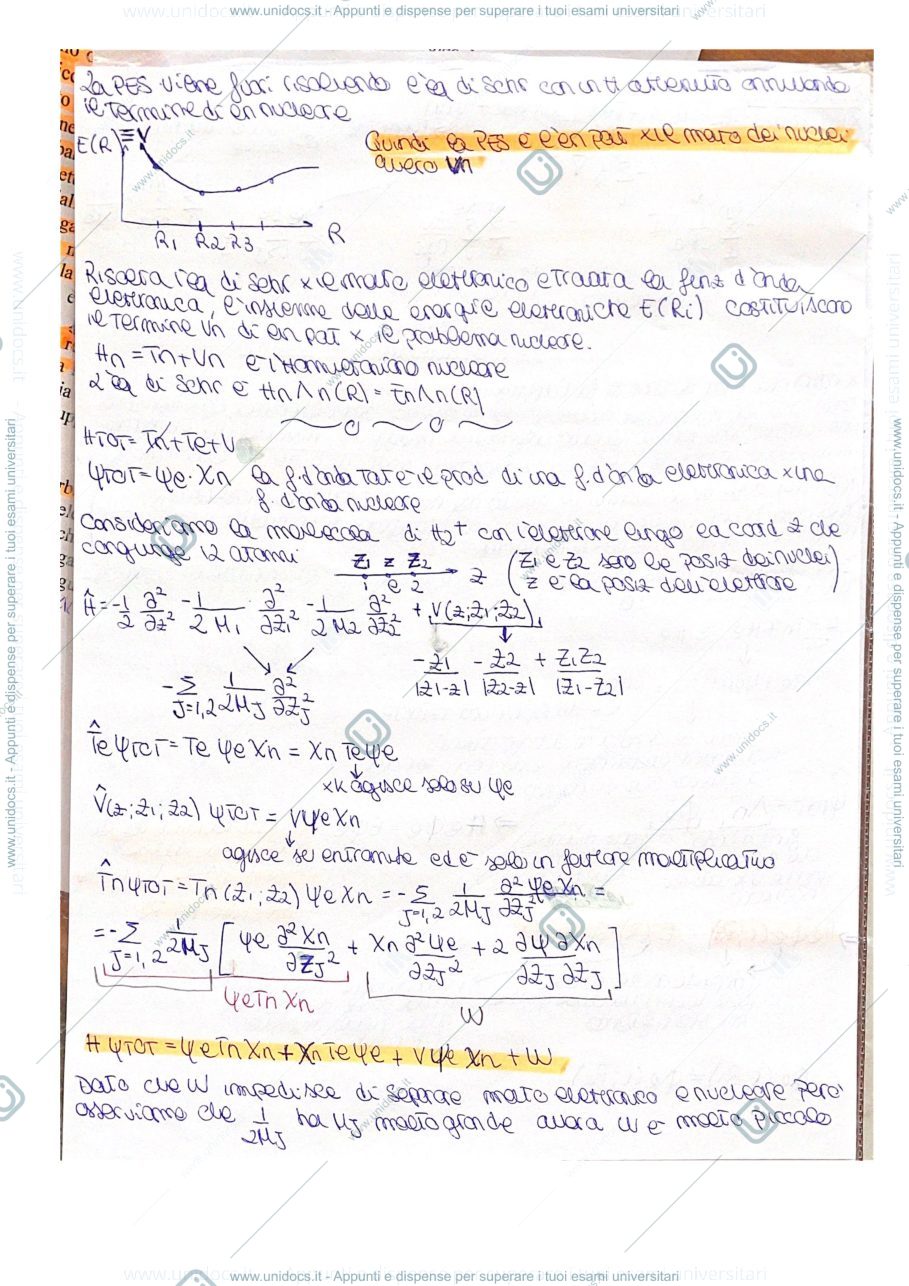 www.unidocs.it - Appunti e dispense per superare i tuoi esami universitari
La PES viene fuori risolvendo l'eq di Schr con un H ottenuto annullando
il termine di en nucleare
E(R)≡V
R1 R2 R3
R
Quindi la PES è l'en pot x il moto dei nuclei
ovvero Vn
Risolta l'eq di Schr x il moto elettronico e trovata la funz d'onda
elettronica, l'insieme delle energie elettroniche E(Ri) costituiscono
il termine Vn di en pot x il problema nucleare.
Hn = Tn+Vn è l'Hamiltoniano nucleare
L'eq di Schr è HnΛn(R) = EnΛn(R)
HTOT= Tn+Te+V
ψTOT= ψe·Χn la f. d'onda tot è il prod di una f. d'onda elettronica x una
f. d'onda nucleare
Consideriamo la molecola di H2+ con l'elettrone lungo la coord z che
congiunge i 2 atomi
Z1 z Z2
1 e 2
z
(Z1 e Z2 sono le posiz dei nuclei
z è la posiz dell'elettrone)
Ĥ = -1/2 ∂²/∂z² - 1/2M1 · ∂²/∂Z1² - 1/2M2 ∂²/∂Z2² + V(z;Z1;Z2)
-Z1/|Z1-z| - Z2/|Z2-z| + Z1Z2/|Z1-Z2|
-Σ J=1,2 1/2MJ ∂²/∂ZJ²
T̂e ψTOT = Te ψe Χn = Χn Te ψe
xk agisce solo su ψe
V̂(z;Z1;Z2) ψTOT = VψeΧn
agisce su entrambe ed è solo un fattore moltiplicativo
T̂n ψTOT = Tn (Z1;Z2) ψe Χn = -Σ J=1,2 1/2MJ ∂²ψeΧn/∂ZJ² =
= -Σ J=1,2 1/2MJ [ψe ∂²Χn/∂ZJ² + Χn ∂²ψe/∂ZJ² + 2 ∂ψ/∂ZJ ∂Χn/∂ZJ]
ψeTnΧn
W
HψTOT = ψeTnΧn + ΧnTeψe + VψeΧn + W
Dato che W impedisce di separare moto elettronico e nucleare però
osserviamo che 1/2MJ ha MJ molto grande allora W è molto piccolo
www.unidocs.it - Appunti e dispense per superare i tuoi esami universitari